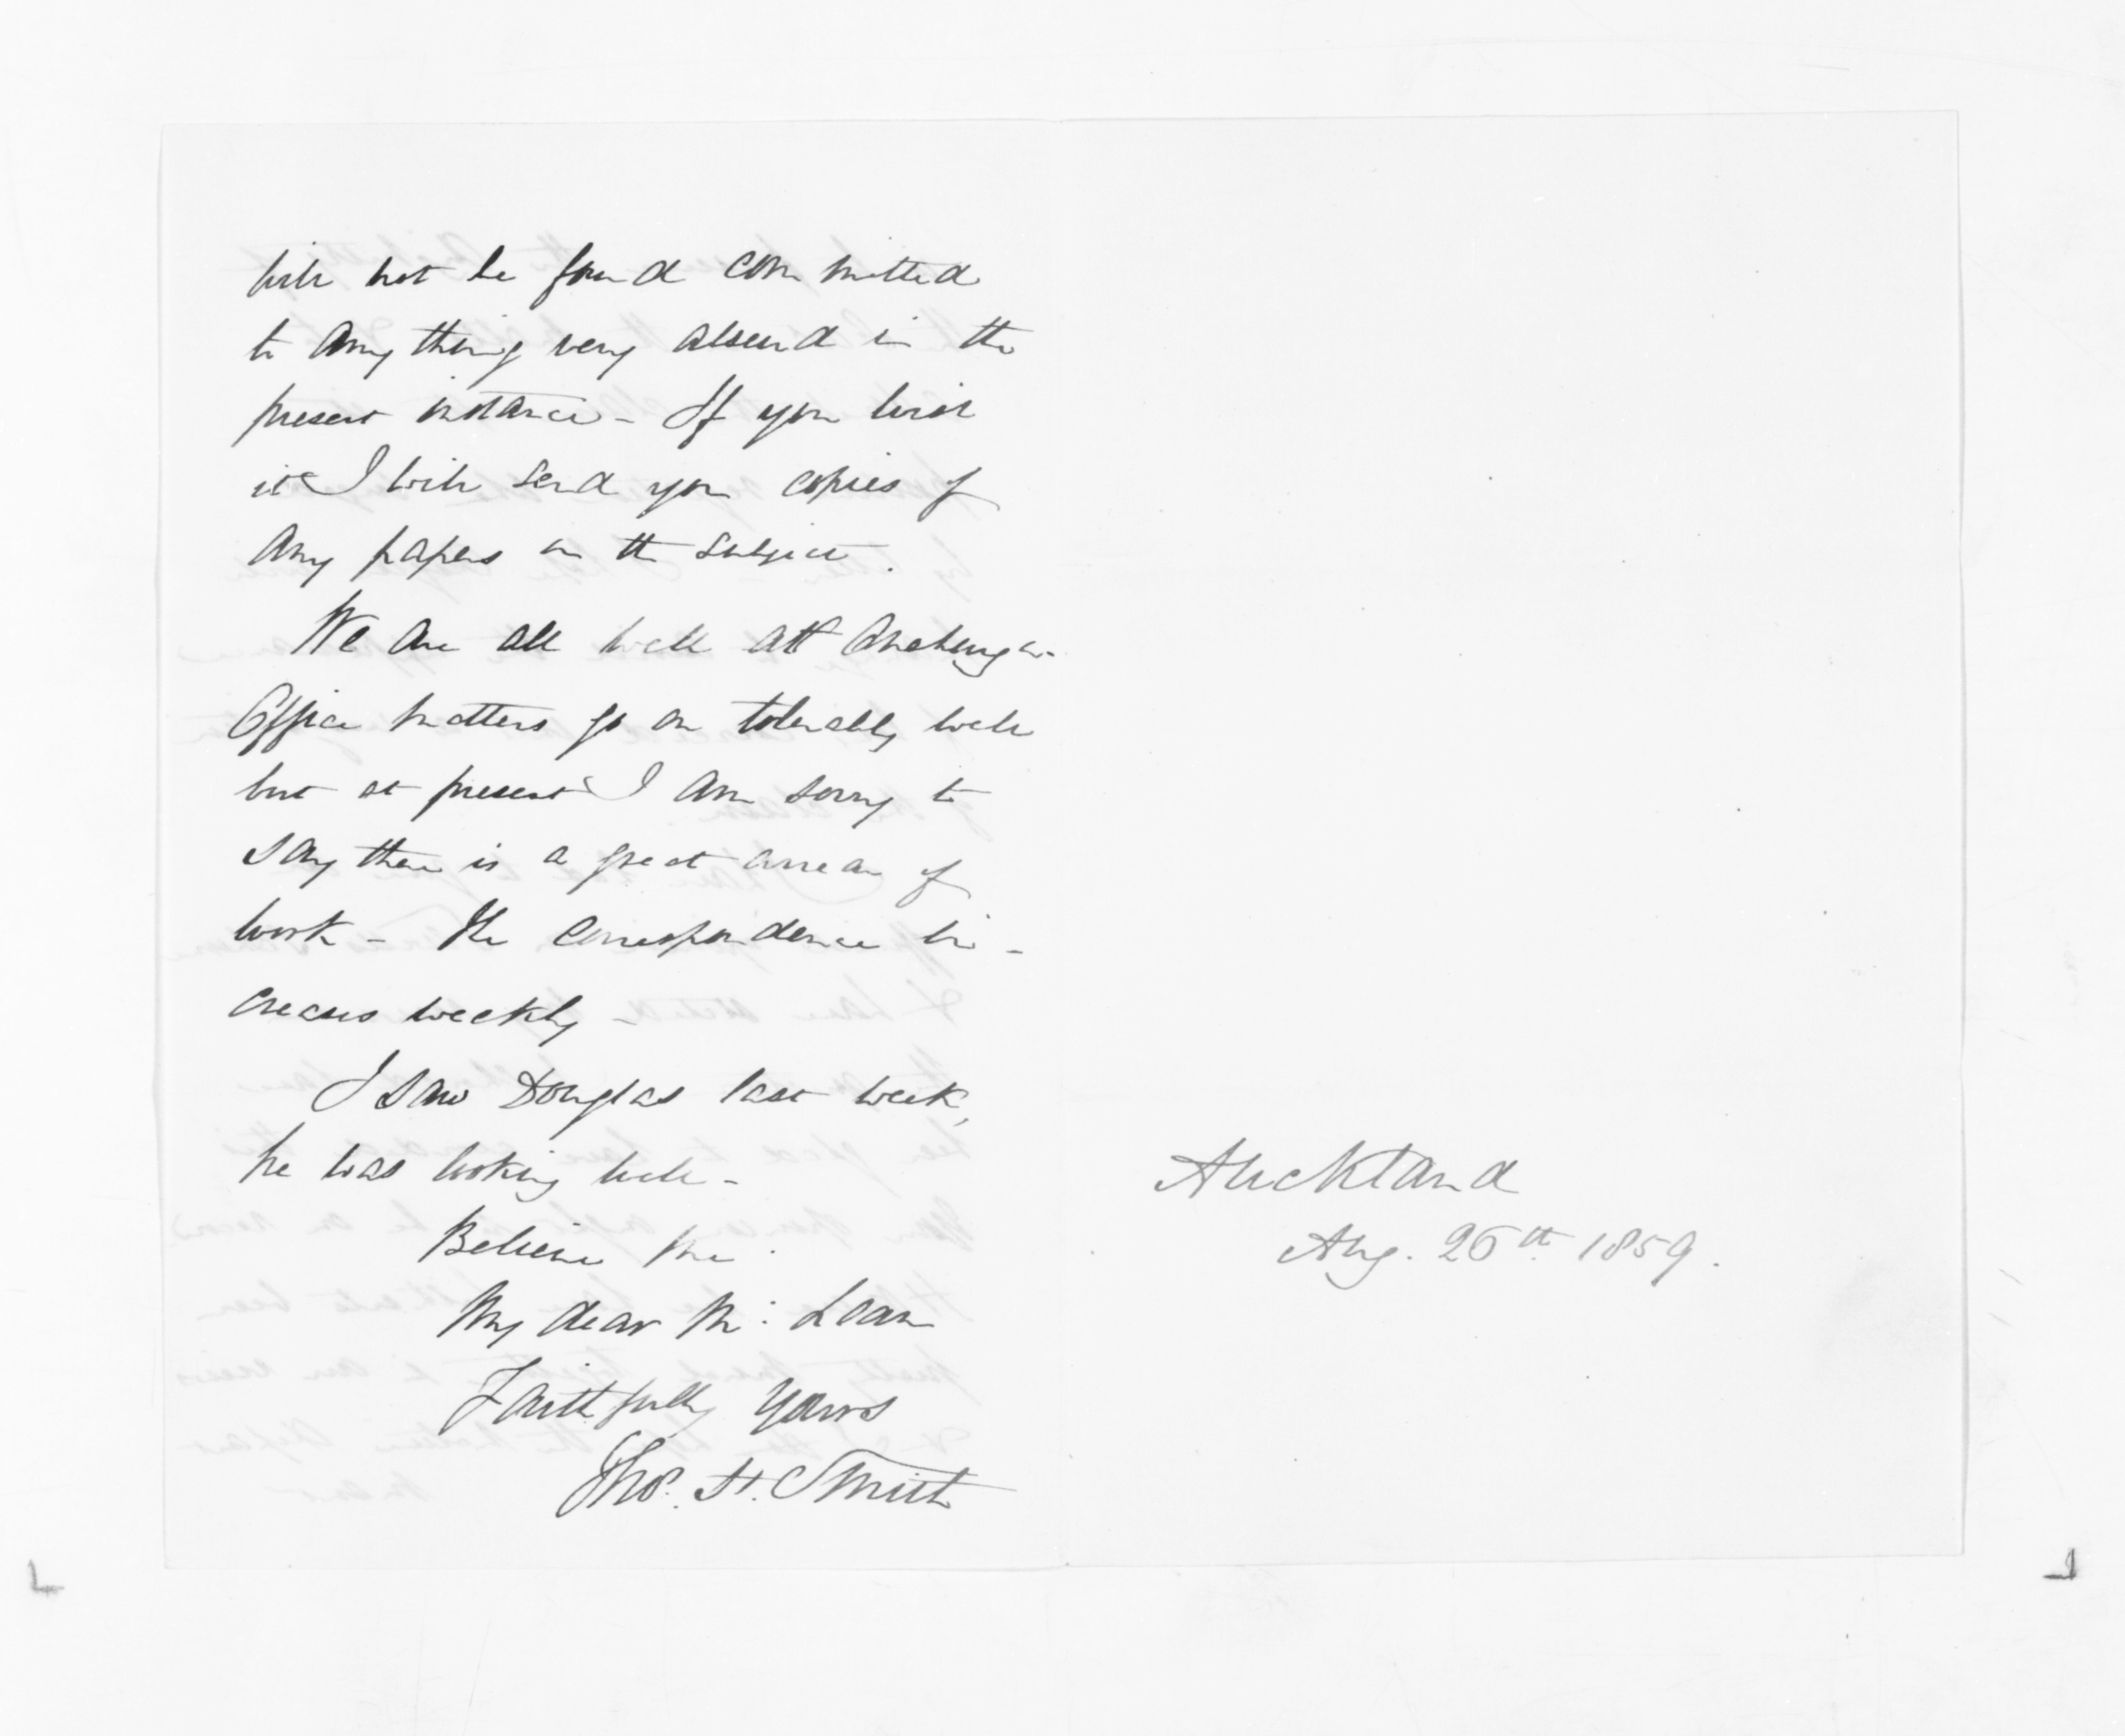 will not be found committed
to any thing very absurd in the
present instance - If you wish
it I will send you copies of
any papers on the subject.
We are all well at Onehunga -
Office matters go on tolerably well
but at present I am sorry to
say there is a great arrear of
work - The correspondence in-
creases weekly -
I saw Douglas last week,
he was looking well -
Believe me
My dear Mc: Lean
Faithfully yours
Thos. H. Smith
Auckland
Aug. 26th 1859.